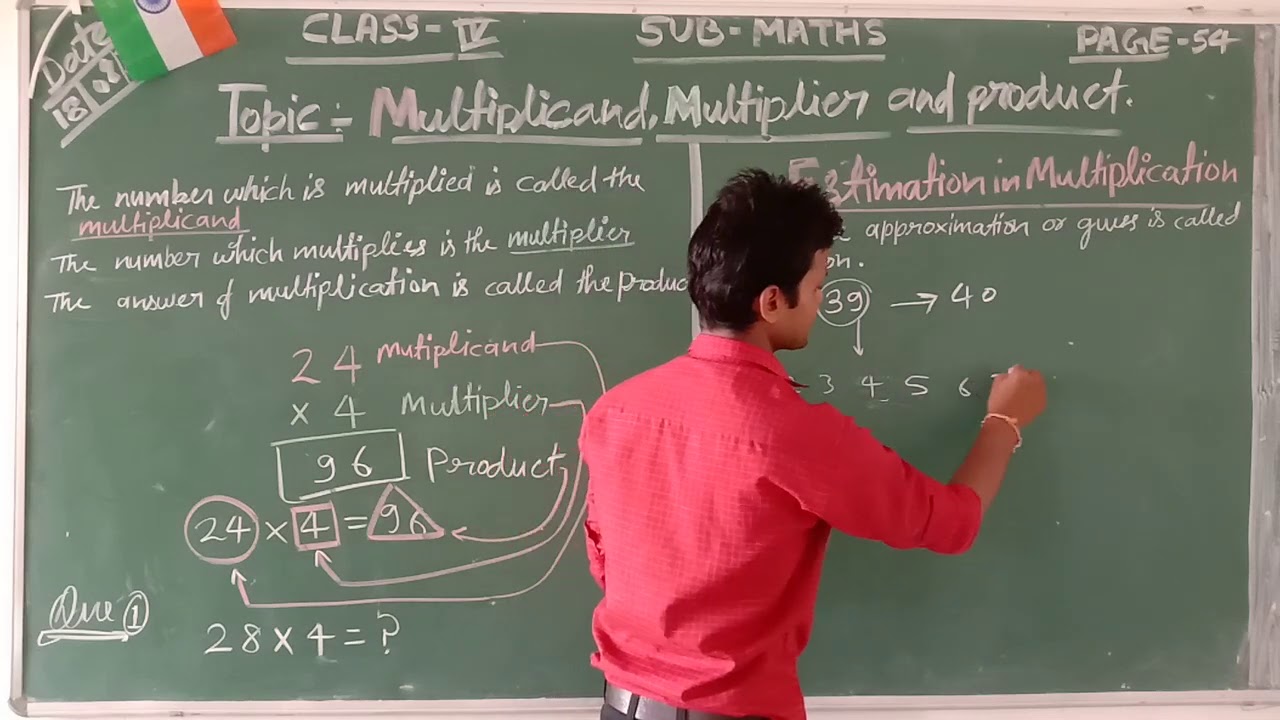 Date
18/08
CLASS-IV
SUB-MATHS
PAGE-54
Topic:- Multiplicand, Multiplier and product.
The number which is multiplied is called the
multiplicand
The number which multiplies is the multiplier
The answer of multiplication is called the produc
24 Mutiplicand
x 4 Multiplier
96 Product
24 x 4 = 96
Que 1
28 x 4 = ?
Estimation in Multiplication
approximation or guess is called
on.
39 → 40
3 4 5 6